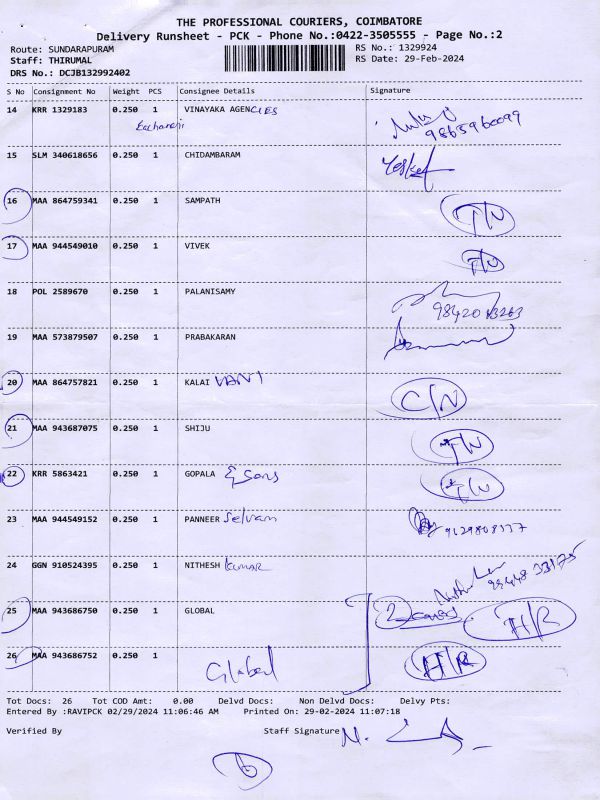 THE PROFESSIONAL COURIERS, COIMBATORE
Delivery Runsheet - PCK - Phone No.:0422-3505555 - Page No.:2
Route: SUNDARAPURAM RS No.: 1329924
Staff: THIRUMAL RS Date: 29-Feb-2024
DRS No.: DCJB132992402
S No Consignment No Weight PCS Consignee Details Signature
14 KRR 1329183 0.250 1 VINAYAKA AGENCIES
9865960099
15 SLM 340618656 0.250 1 CHIDAMBARAM
16 MAA 864759341 0.250 1 SAMPATH T/N
17 MAA 944549010 0.250 1 VIVEK T/N
18 POL 2589670 0.250 1 PALANISAMY
19 MAA 573879507 0.250 1 PRABAKARAN
20 MAA 864757821 0.250 1 KALAI VANI C/N
21 MAA 943687075 0.250 1 SHIJU T/N
22 KRR 5863421 0.250 1 GOPALA & Sons T/N
23 MAA 944549152 0.250 1 PANNEER Selvam
24 GGN 910524395 0.250 1 NITHESH KUMAR
25 MAA 943686750 0.250 1 GLOBAL 2 covers H/R
26 MAA 943686752 0.250 1 Global H/R
Tot Docs: 26 Tot COD Amt: 0.00 Delvd Docs: Non Delvd Docs: Delvy Pts:
Entered By :RAVIPCK 02/29/2024 11:06:46 AM Printed On: 29-02-2024 11:07:18
Verified By Staff Signature